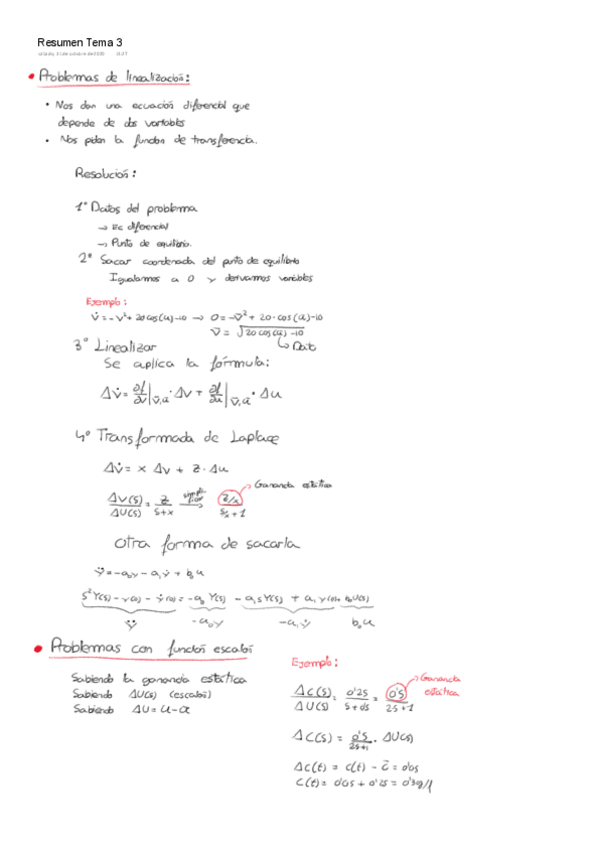 Resumen Tema 3
• Problemas de linealización:
• Nos dan una ecuación diferencial que
depende de dos variables
• Nos piden la función de transferencia.
Resolución:
1º Datos del problema
→ Ec diferencial
→ Punto de equilibrio.
2º Sacar coordenada del punto de equilibrio
Igualamos a 0 y derivamos variables
Ejemplo:
v̇ = -v² + 20cos(u)-10 → 0 = -v̄² + 20·cos(ū)-10
v̄ = √20cos(ū)-10
↳ Dato
3º Linealizar
Se aplica la fórmula:
Δv̇ = ∂f/∂v|v̄,ū · Δv + ∂f/∂u|v̄,ū · Δu
4º Transformada de Laplace
Δv̇ = x Δv + z·Δu
ΔV(s)/ΔU(s) = z/(s+x) → (z/x)/(s/x + 1) → Ganancia estática
Otra forma de sacarla
ÿ = -a₀y - a₁ẏ + b₀u
s²Y(s) - y(0) - ẏ(0) = -a₀ Y(s) - a₁sY(s) + a₁y(0) + b₀U(s)
ÿ -a₀y -a₁ẏ b₀u
• Problemas con función escalón
Sabiendo la ganancia estática
Sabiendo ΔU(s) (escalón)
Sabiendo ΔU = U-ū
Ejemplo:
ΔC(s)/ΔU(s) = 0'25/(s+0'5) = 0'5/(2s+1) → Ganancia estática
ΔC(s) = 0'5/(2s+1) · ΔU(s)
ΔC(t) = C(t) - c̄ = 0'05
C(t) = 0'05 + 0'25 = 0'3g/l